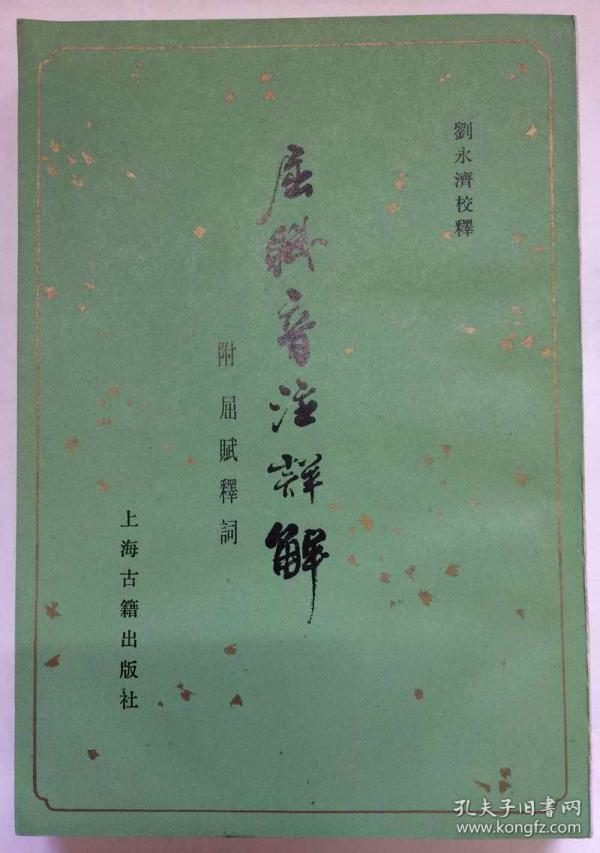 劉永濟校釋
屈賦音注詳解
附屈賦釋詞
上海古籍出版社
孔夫子旧书网
www.kongfz.com